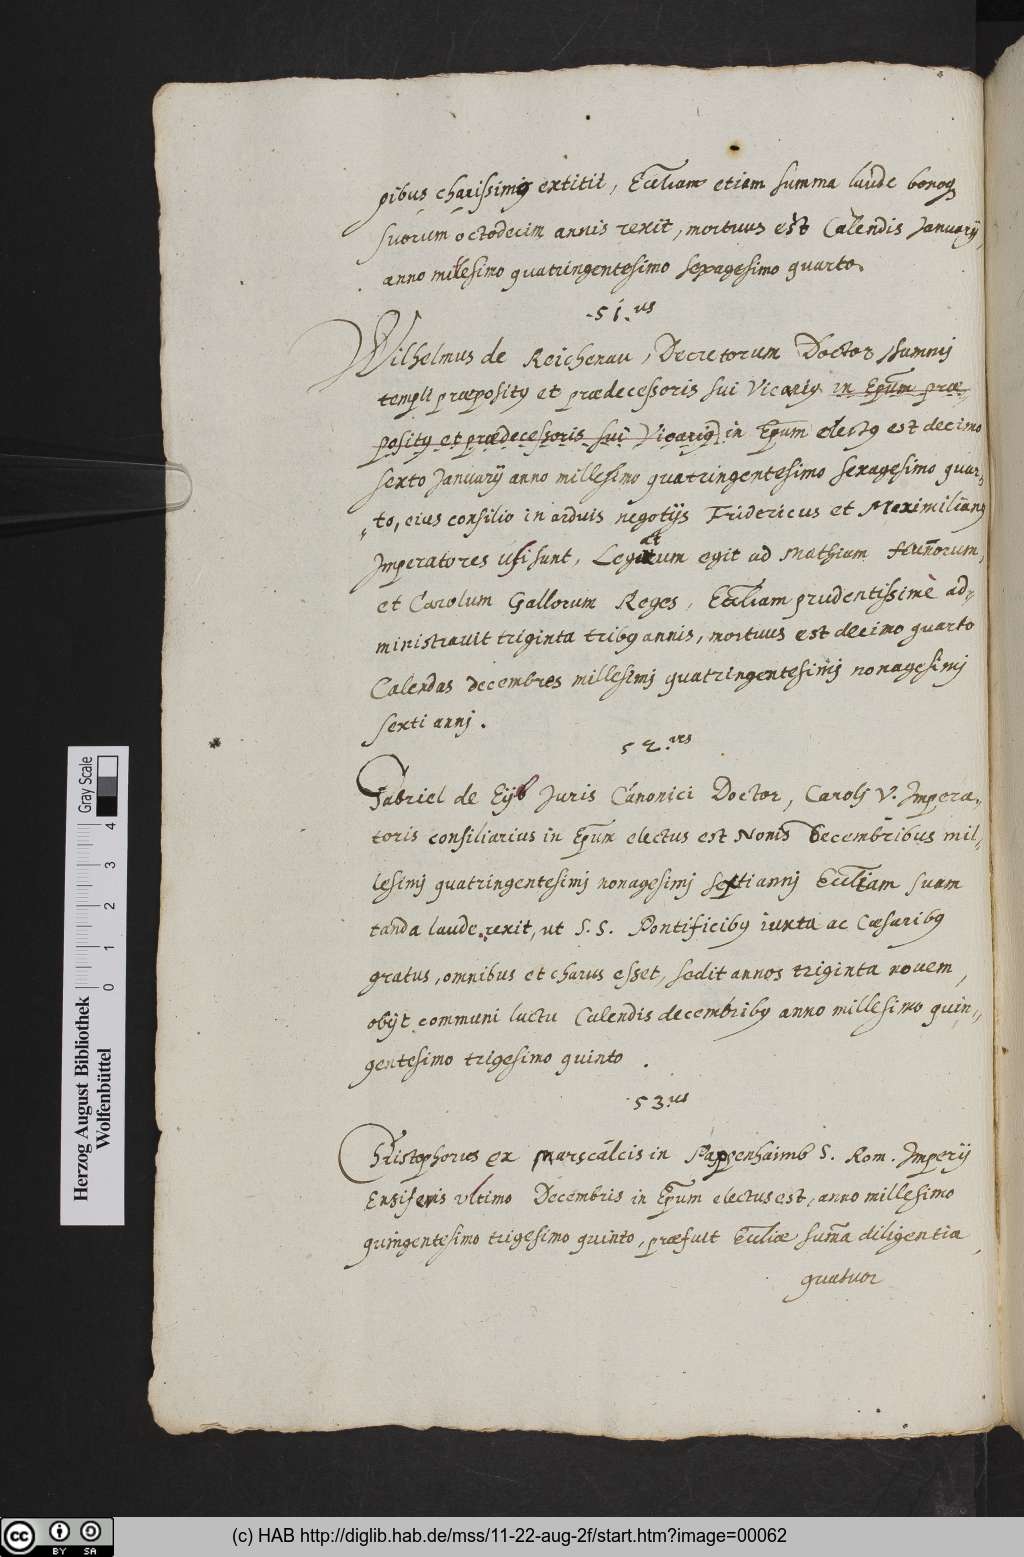 pibus charissimus extitit, Eccliam etiam summa laude bonoq
suorum octodecim annis rexit, mortuus est Calendis Januarij
anno milesimo quatringentesimo sexagesimo quarto.
51.us
Wilhelmus de Reichenau, Decretorum Doctor summj
templi præposity et prædecessoris sui Vicariy in Epūm præ-
posity et prædecessoris sui Vicariy in Epum electy est decimo
sexto Januarij anno millesimo quatringentesimo sexagesimo quar-
to, eius consilio in arduis negotijs Fridericus et Maximilianus
Imperatores usi sunt, Legatum egit ad Mathiam Hunorum,
et Carolum Gallorum Reges, Eccliam prudentissimè ad-
ministrauit triginta triby annis, mortuus est decimo quarto
Calendas decembres millesimj quatringentesimj nonagesimj
sexti annj.
52.us
Gabriel de Eijb Juris Canonici Doctor, Carolj V. Impera-
toris consiliarius in Epum electus est Nonis Decembribus mil-
lesimj quatringentesimj nonagesimj sexti annj Eccliam suam
tanda laude rexit, ut S. S. Pontificiby iuxta ac Cæsariby
gratus, omnibus et charus esset, sedit annos triginta novem,
obijt communi luctu Calendis decembriby anno millesimo quin-
gentesimo trigesimo quinto.
53.us
Christophorus ex Marscalcis in Pappenhaimb S. Rom. Imperij
Ensiferis ultimo Decembris in Epum electus est, anno millesimo
quingentesimo trigesimo quinto, præfuit Eccliæ suma diligentia
quatuor
Herzog August Bibliothek
Wolfenbüttel
0 1 2 3 4
Gray Scale
cc BY SA
(c) HAB http://diglib.hab.de/mss/11-22-aug-2f/start.htm?image=00062